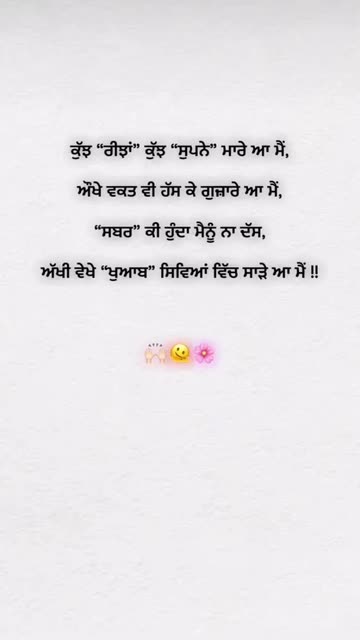 ਕੁੱਝ “ਰੀਝਾਂ” ਕੁੱਝ “ਸੁਪਨੇ” ਮਾਰੇ ਆ ਮੈਂ,
ਔਖੇ ਵਕਤ ਵੀ ਹੱਸ ਕੇ ਗੁਜ਼ਾਰੇ ਆ ਮੈਂ,
“ਸਬਰ” ਕੀ ਹੁੰਦਾ ਮੈਨੂੰ ਨਾ ਦੱਸ,
ਅੱਖੀ ਵੇਖੇ “ਖੁਆਬ” ਸਿਵਿਆਂ ਵਿੱਚ ਸਾੜੇ ਆ ਮੈਂ !!